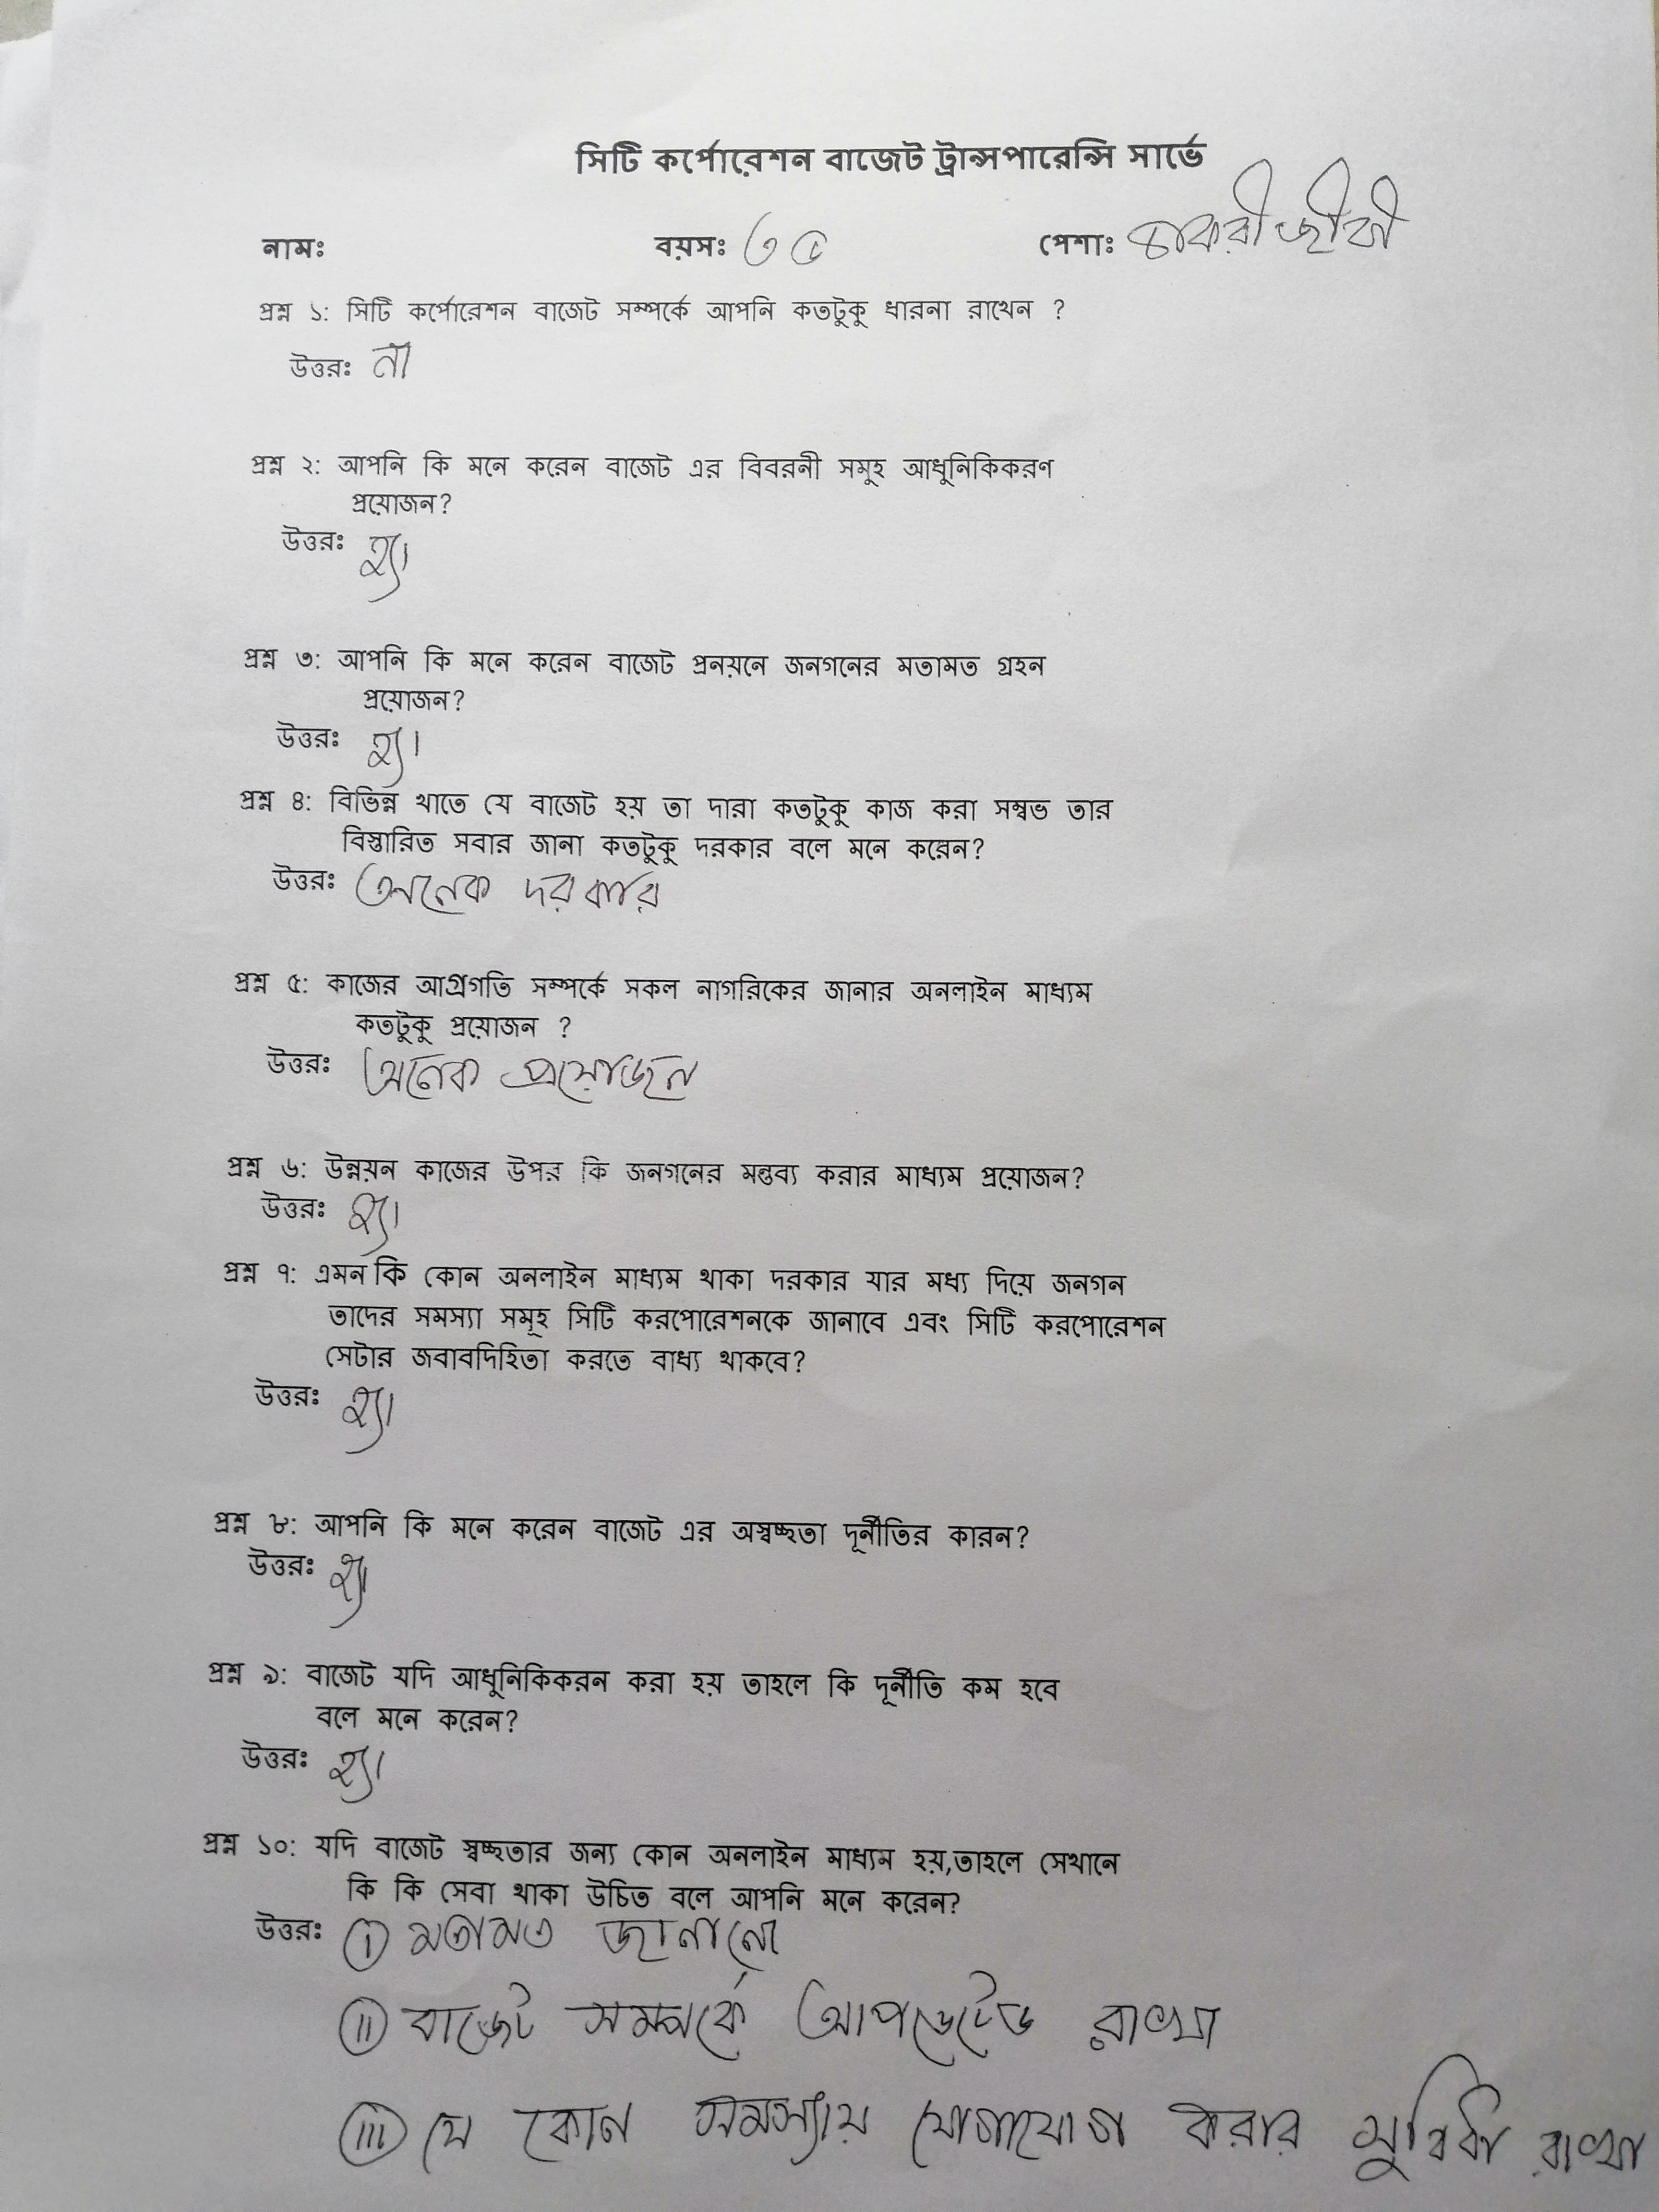 সিটি কর্পোরেশন বাজেট ট্রান্সপারেন্সি সার্ভে
নামঃ বয়সঃ ৩৫ পেশাঃ চাকরীজীবী
প্রশ্ন ১: সিটি কর্পোরেশন বাজেট সম্পর্কে আপনি কতটুকু ধারনা রাখেন ?
উত্তরঃ না
প্রশ্ন ২: আপনি কি মনে করেন বাজেট এর বিবরনী সমুহ আধুনিকিকরণ
প্রয়োজন?
উত্তরঃ হ্যা
প্রশ্ন ৩: আপনি কি মনে করেন বাজেট প্রনয়নে জনগনের মতামত গ্রহন
প্রয়োজন?
উত্তরঃ হ্যা
প্রশ্ন ৪: বিভিন্ন খাতে যে বাজেট হয় তা দারা কতটুকু কাজ করা সম্বভ তার
বিস্তারিত সবার জানা কতটুকু দরকার বলে মনে করেন?
উত্তরঃ অনেক দরকার
প্রশ্ন ৫: কাজের আগ্রগতি সম্পর্কে সকল নাগরিকের জানার অনলাইন মাধ্যম
কতটুকু প্রয়োজন ?
উত্তরঃ অনেক প্রয়োজন
প্রশ্ন ৬: উন্নয়ন কাজের উপর কি জনগনের মন্তব্য করার মাধ্যম প্রয়োজন?
উত্তরঃ হ্যা
প্রশ্ন ৭: এমন কি কোন অনলাইন মাধ্যম থাকা দরকার যার মধ্য দিয়ে জনগন
তাদের সমস্যা সমূহ সিটি করপোরেশনকে জানাবে এবং সিটি করপোরেশন
সেটার জবাবদিহিতা করতে বাধ্য থাকবে?
উত্তরঃ হ্যা
প্রশ্ন ৮: আপনি কি মনে করেন বাজেট এর অস্বচ্ছতা দূর্নীতির কারন?
উত্তরঃ হ্যা
প্রশ্ন ৯: বাজেট যদি আধুনিকিকরন করা হয় তাহলে কি দূর্নীতি কম হবে
বলে মনে করেন?
উত্তরঃ হ্যা
প্রশ্ন ১০: যদি বাজেট স্বচ্ছতার জন্য কোন অনলাইন মাধ্যম হয়,তাহলে সেখানে
কি কি সেবা থাকা উচিত বলে আপনি মনে করেন?
উত্তরঃ (i) মতামত জানানো
(ii) বাজেট সম্পর্কে আপডেটেড রাখা
(iii) যে কোন সমস্যায় যোগাযোগ করার সুবিধা রাখা